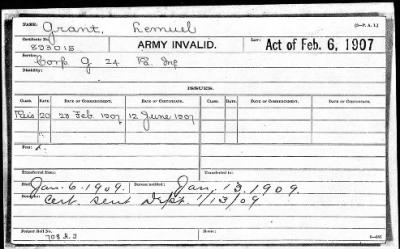 NAME: Grant, Lemuel (3-P. A. I.)
Certificate No. 893015 ARMY INVALID. Law: Act of Feb. 6, 1907
Service: Corp G 24 Pa Inf
Disability:
ISSUES.
CLASS. RATE. DATE OF COMMENCEMENT. DATE OF CERTIFICATE. CLASS. RATE. DATE OF COMMENCEMENT. DATE OF CERTIFICATE.
20 23 Feb. 1907 12 June 1907
Fee:
Transferred from: Transferred to:
Died: Jan. 6. 1909. Bureau notified: Jan. 13. 1909.
Cert. sent Dept. 1/13/09
Former Roll No. Home: